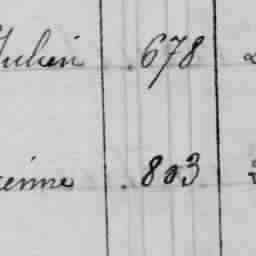 Julien 678
enne 803